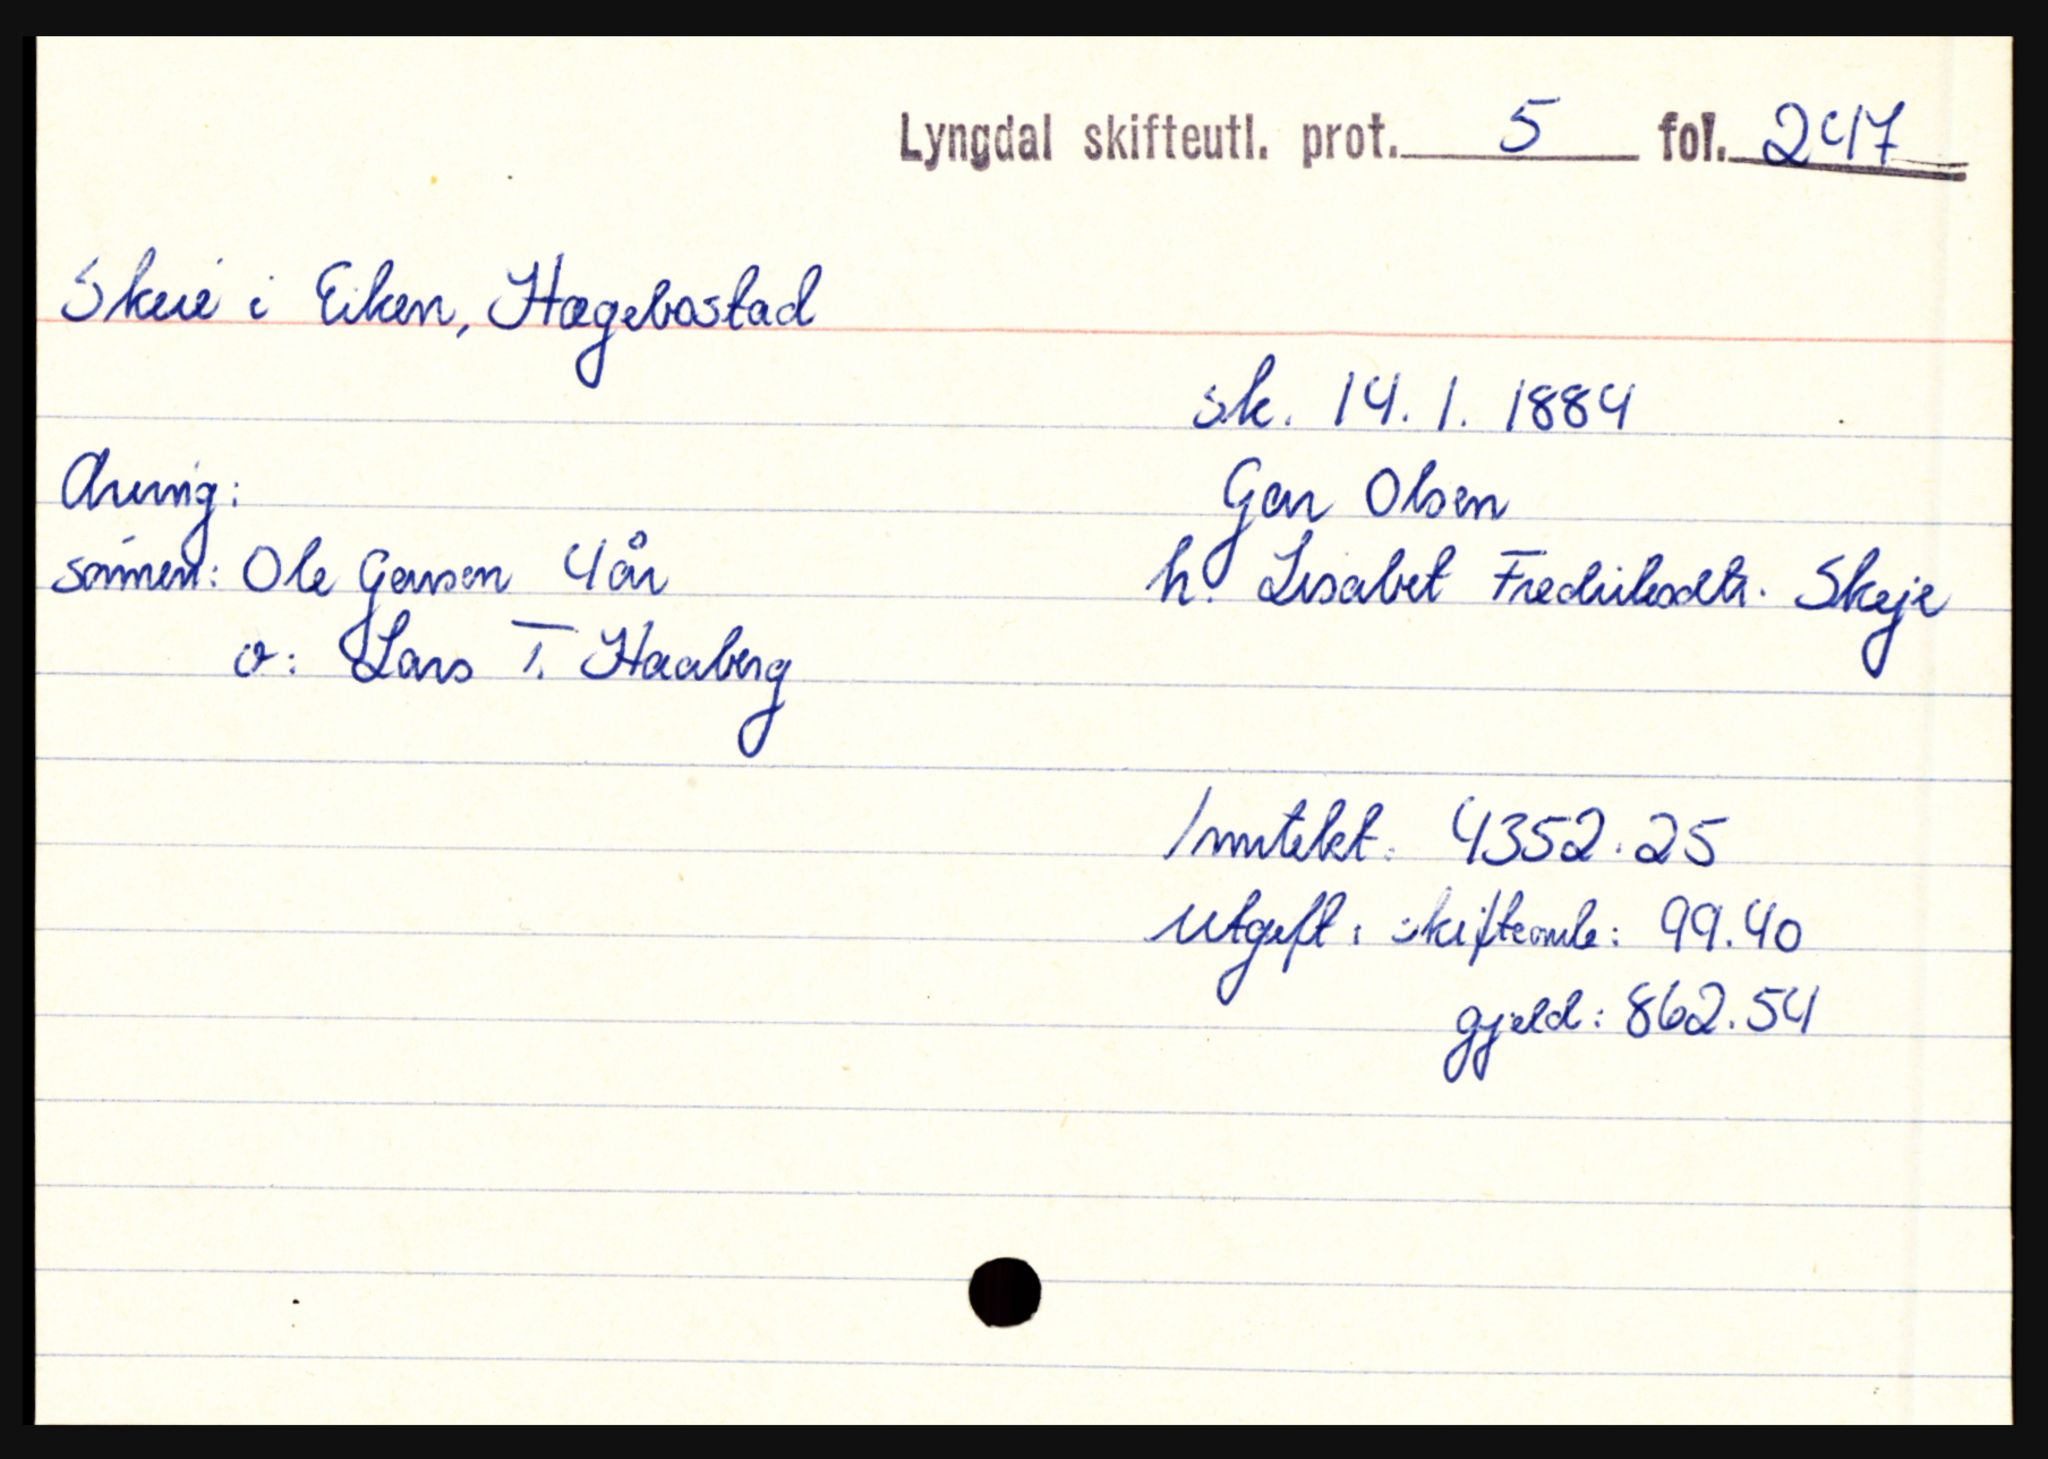 Lyngdal skifteutl. prot. 5 fol. 247
Skeie i Eiken, Hægebostad
sk. 14. 1. 1884
Arving:
Ger Olsen
sønnen: Ole Gersen 4 år
h. Lisabet Fredriksdtr. Skeje
v: Lars T. Haaberg
Inntekt: 4352.25
Utgift: skifteomk: 99.40
gjeld: 862.54